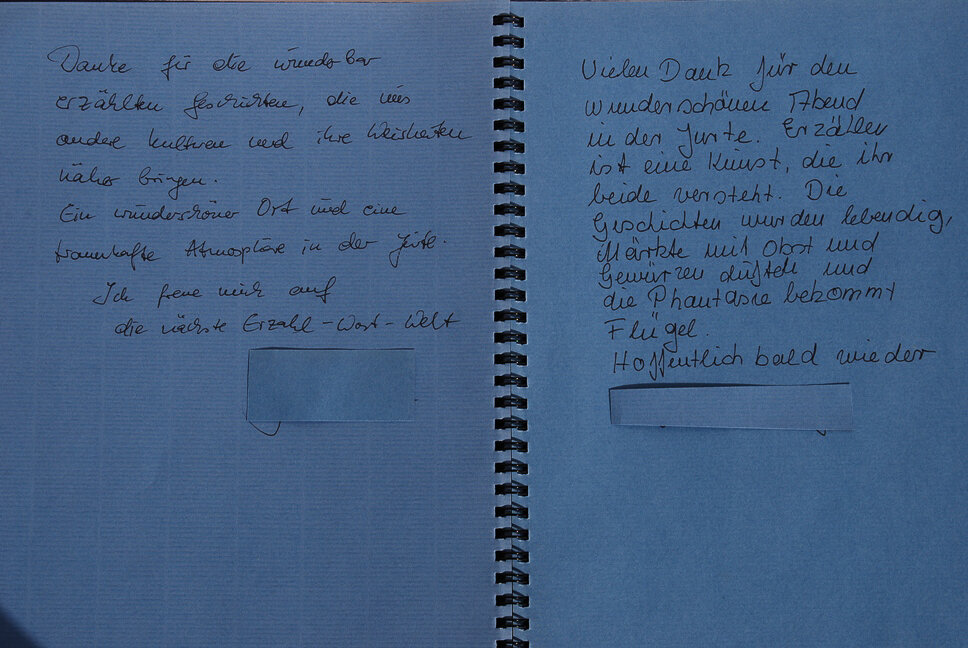 Danke für die wunderbar
erzählten Geschichten, die uns
andere Kulturen und ihre Weisheiten
näher bringen.
Ein wunderschöner Ort und eine
traumhafte Atmosphäre in der Jurte.
Ich freue mich auf
die nächste Erzähl-Wort-Welt
Vielen Dank für den
wunderschönen Abend
in der Jurte. Erzählen
ist eine Kunst, die ihr
beide versteht. Die
Geschichten wurden lebendig,
Märkte mit Obst und
Gewürzen duften und
die Phantasie bekommt
Flügel.
Hoffentlich bald wieder